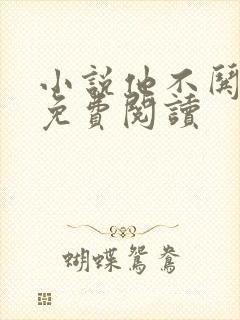 小說他不關
免費閱讀
蝴蝶鴛鴦